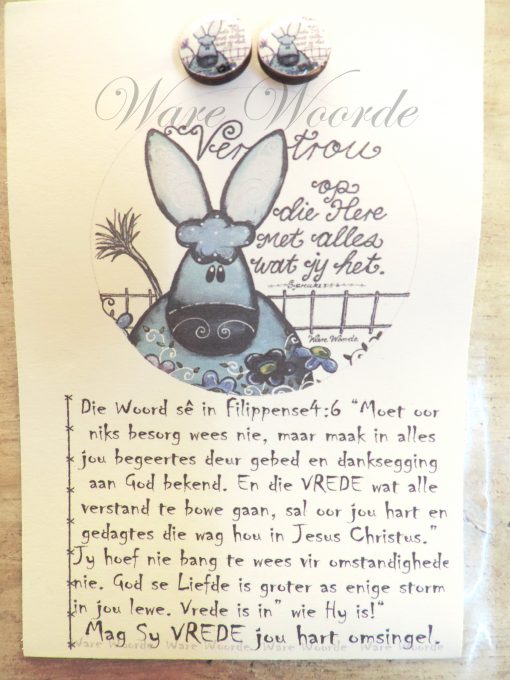 Ware Woorde
Vertrou
op
die Here
met alles
wat jy het.
Spreuke 3:5
Ware Woorde
Die Woord sê in Filippense4:6 “Moet oor
niks besorg wees nie, maar maak in alles
jou begeertes deur gebed en danksegging
aan God bekend. En die VREDE wat alle
verstand te bowe gaan, sal oor jou hart en
gedagtes die wag hou in Jesus Christus.”
Jy hoef nie bang te wees vir omstandighede
nie. God se Liefde is groter as enige storm
in jou lewe. Vrede is in” wie Hy is!“
Mag Sy VREDE jou hart omsingel.
Ware Woorde Ware Woorde Ware Woorde Ware Woorde Ware Woorde